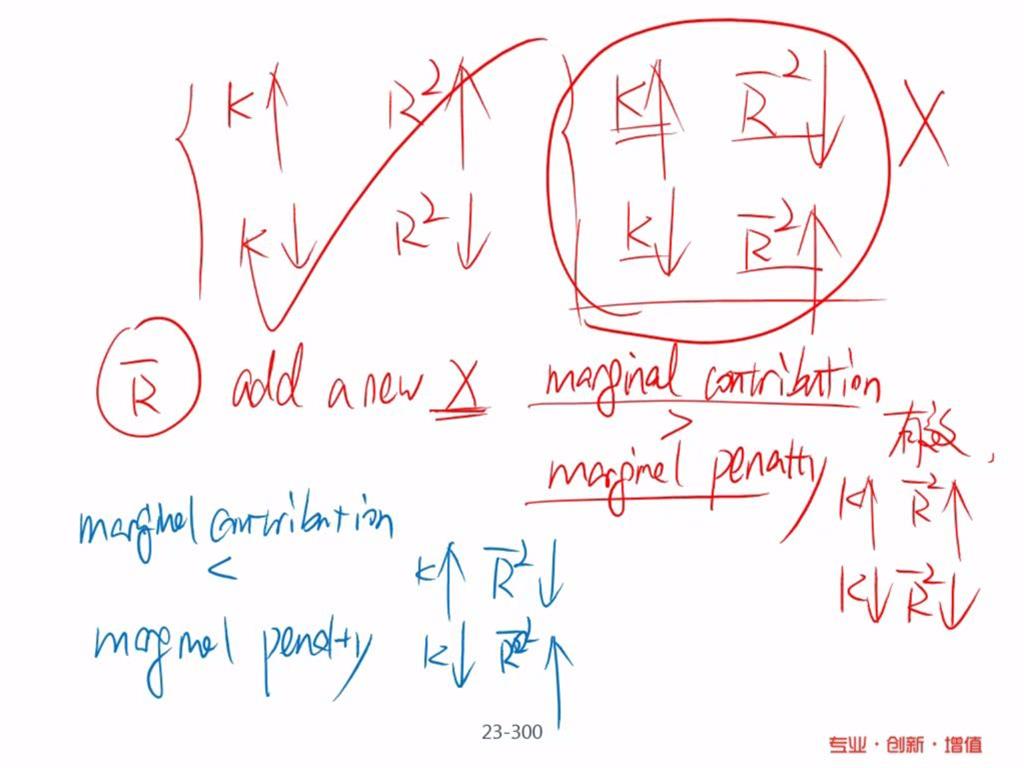 K↑ R²↑ K↑ R̅²↓ X
K↓ R²↓ K↓ R̅²↑
R̅ add a new X marginal contribution
>
marginel penalty
有效,
K↑ R̅²↑
K↓ R̅²↓
marginel contribution
<
marginel penalty
K↑ R̅²↓
K↓ R̅²↑
23-300
专业·创新·增值